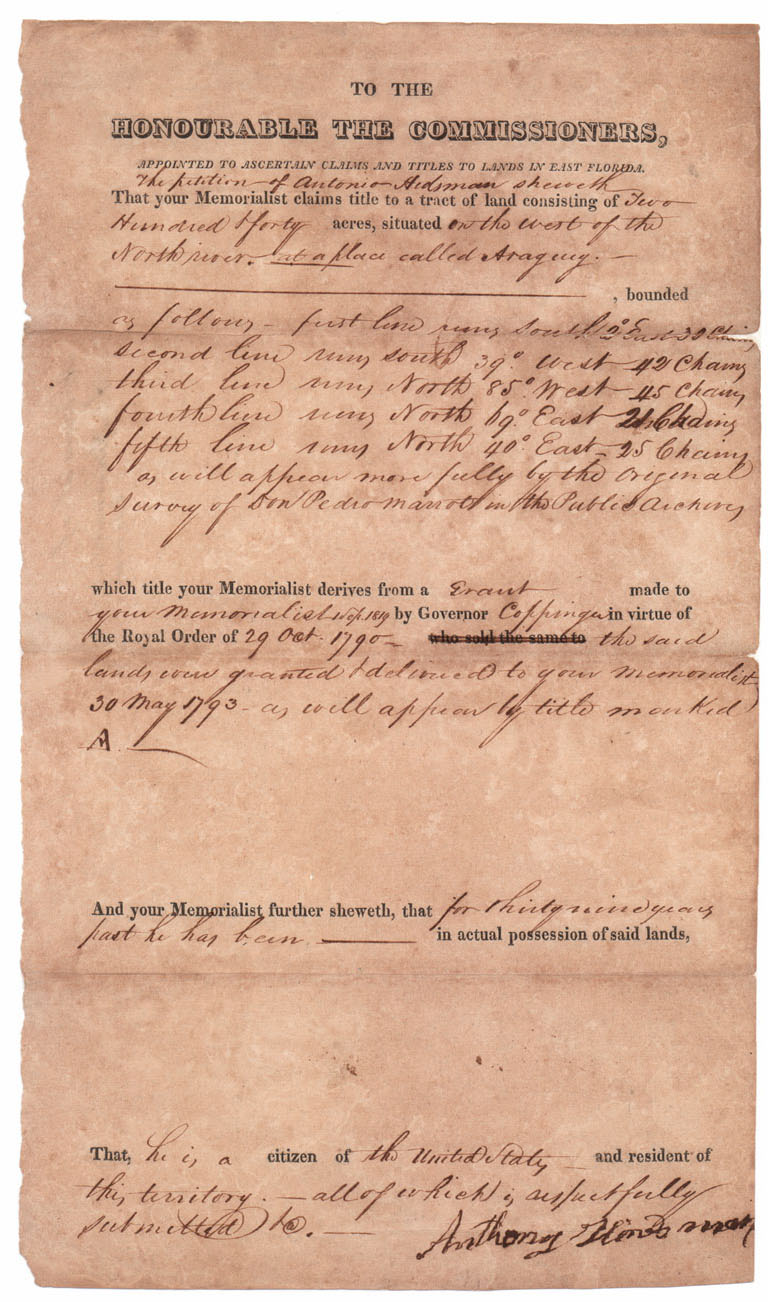 TO THE
HONOURABLE THE COMMISSIONERS,
APPOINTED TO ASCERTAIN CLAIMS AND TITLES TO LANDS IN EAST FLORIDA.
The petition of Antonio sheweth
That your Memorialist claims title to a tract of land consisting of Two
Hundred & forty acres, situated on the west of the
North river. at a place called Araguey. —
, bounded
as follows - first line runs South 2° East 30 Chains
second line runs south 39° West 42 Chains
third line runs North 85° West 45 Chains
fourth line runs North 69° East Chains
fifth line runs North 40° East - 25 Chains
as will appear more fully by the Original
survey of Don Pedro Marrott in the Public Archives
which title your Memorialist derives from a Grant made to
your Memorialist by Governor Coppinger in virtue of
the Royal Order of 29 Oct. 1790 — who sold the same to the said
lands were granted & delivered to your Memorialist
30 May 1793 - as will appear by title marked
A
And your Memorialist further sheweth, that for thirty nine years
past he has been in actual possession of said lands,
That, he is a citizen of the United States and resident of
this territory. — all of which is respectfully
submitted &c. —
Anthony